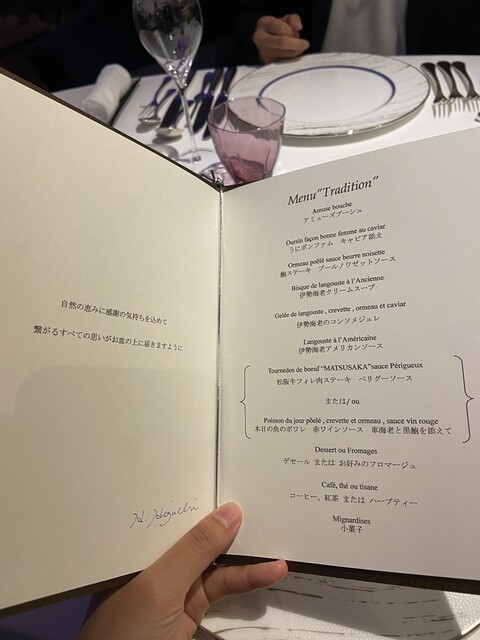 自然の恵みに感謝の気持ちを込めて
繋がるすべての思いがお皿の上に届きますように
H. Higuchi
Menu"Tradition"
Amuse bouche
アミューズブーシュ
Oursin façon bonne femme au caviar
うにボンファム キャビア添え
Ormeau poêlé sauce beurre noisette
鮑ステーキ ブールノワゼットソース
Bisque de langouste à l'Ancienne
伊勢海老クリームスープ
Gelée de langouste , crevette , ormeau et caviar
伊勢海老のコンソメジュレ
Langouste à l'Américaine
伊勢海老アメリカンソース
Tournedos de boeuf "MATSUSAKA"sauce Périgueux
松阪牛フィレ肉ステーキ ペリグーソース
または/ ou
Poisson du jour pôelé , crevette et ormeau , sauce vin rouge
本日の魚のポワレ 赤ワインソース 車海老と黒鮑を添えて
Dessert ou Fromages
デセール または お好みのフロマージュ
Café, thé ou tisane
コーヒー、紅茶 または ハーブティー
Mignardises
小菓子